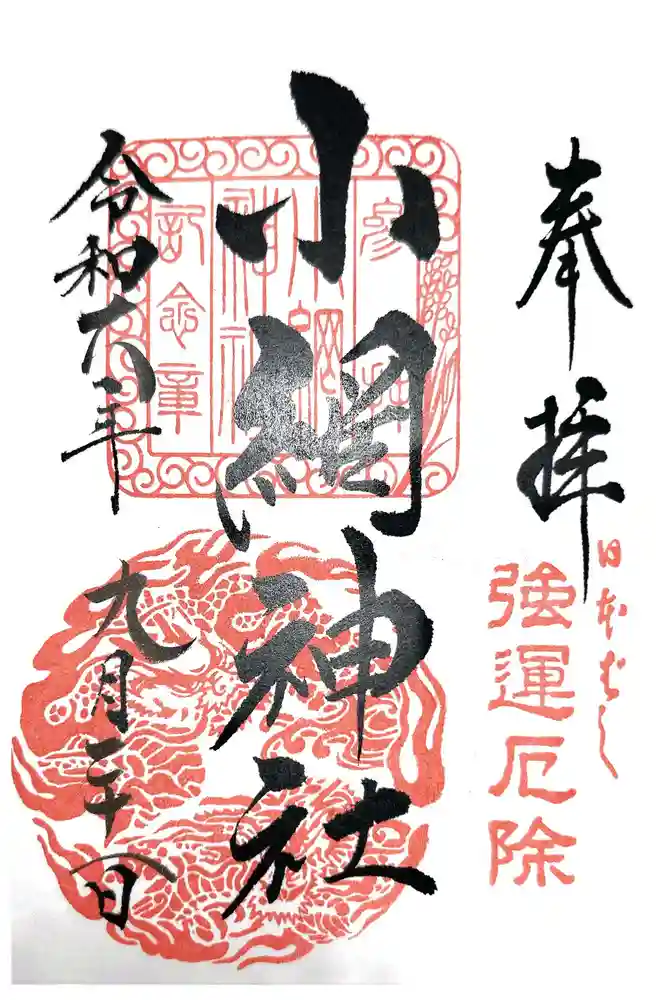 奉拝
日本ばし
強運厄除
参拝
小網
神社
記念章
小網神社
令和六年
九月二十八日